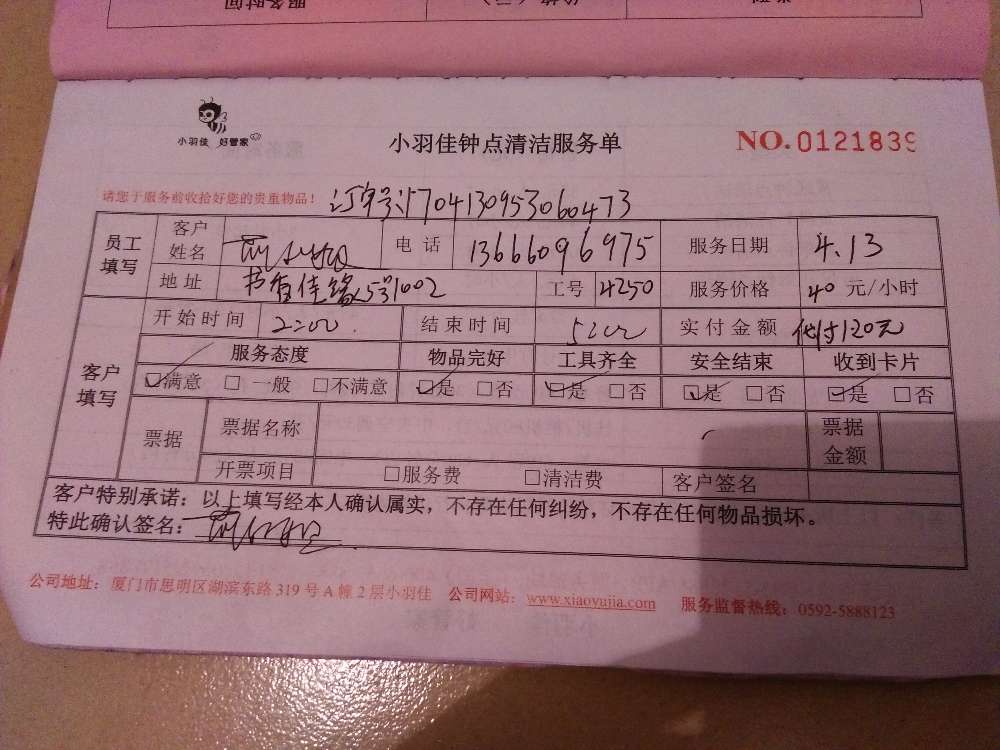 小羽佳 好管家
小羽佳钟点清洁服务单
NO.0121839
请您于服务前收拾好您的贵重物品!
订单号:1704130953060473
员工填写 客户姓名 电话 13666096975 服务日期 4.13
地址 书香佳缘5号1002 工号 4250 服务价格 40 元/小时
客户填写 开始时间 2:00 结束时间 5:00 实付金额 代付120元
服务态度 物品完好 工具齐全 安全结束 收到卡片
☑满意 □一般 □不满意 ☑是 □否 ☑是 □否 ☑是 □否 ☑是 □否
票据 票据名称 票据金额
开票项目 □服务费 □清洁费 客户签名
客户特别承诺:以上填写经本人确认属实,不存在任何纠纷,不存在任何物品损坏。
特此确认签名:
公司地址:厦门市思明区湖滨东路319号A幢2层小羽佳 公司网站:www.xiaoyujia.com 服务监督热线:0592-5888123